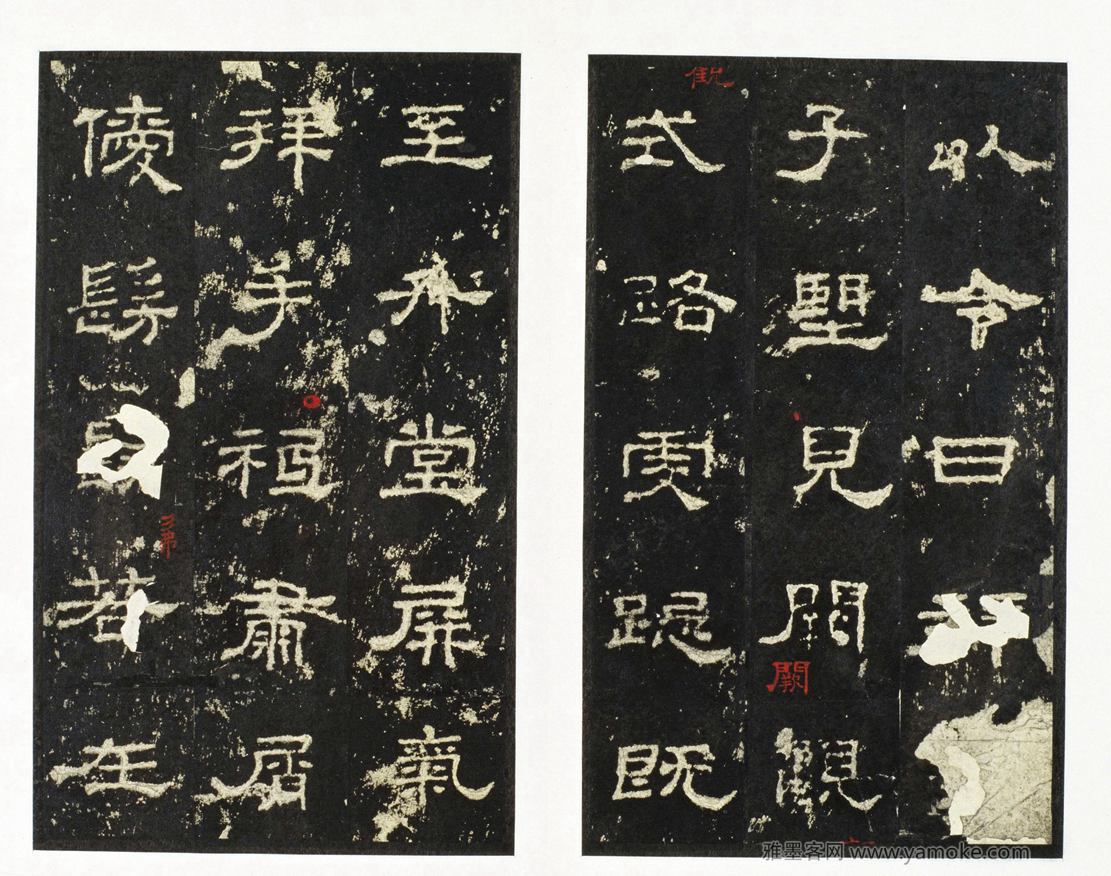 以令日
子望見闕觀
式路虔跽既
至升堂屏氣
拜手祗肅屑
僾髣若在
闕
雅墨客网 www.yamoke.com